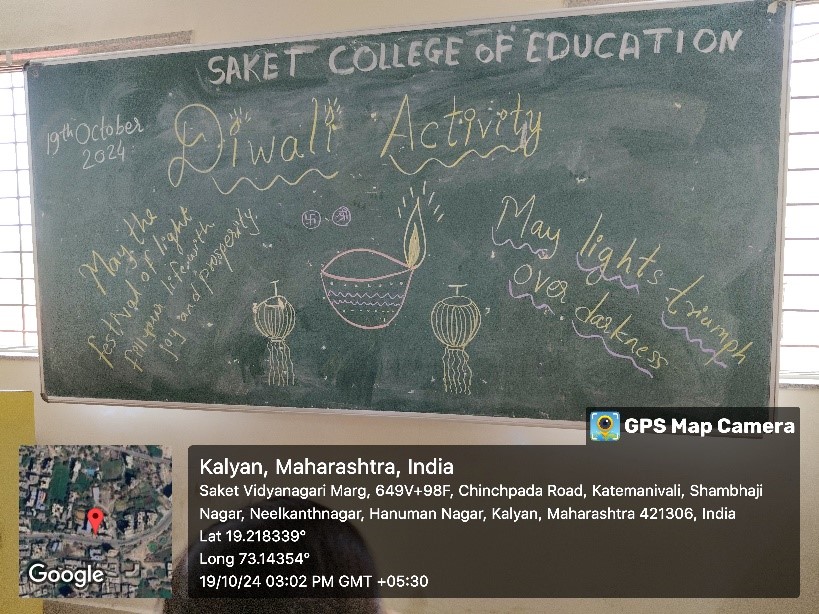 SAKET COLLEGE OF EDUCATION
19th October
2024
Diwali Activity
May the
festival of light
fill your life with
joy and prosperity.
卐
ॐ
May lights triumph
over darkness
GPS Map Camera
Kalyan, Maharashtra, India
Saket Vidyanagari Marg, 649V+98F, Chinchpada Road, Katemanivali, Shambhaji
Nagar, Neelkanthnagar, Hanuman Nagar, Kalyan, Maharashtra 421306, India
Lat 19.218339°
Long 73.14354°
19/10/24 03:02 PM GMT +05:30
Google